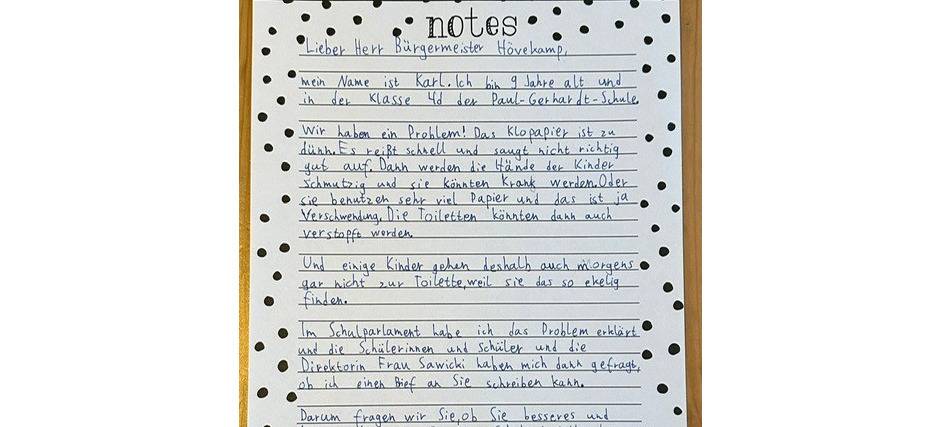 notes
Lieber Herr Bürgermeister Hövekamp,
mein Name ist Karl. Ich bin 9 Jahre alt und
in der Klasse 4d der Paul-Gerhardt-Schule.
Wir haben ein Problem! Das Klopapier ist zu
dünn. Es reißt schnell und saugt nicht richtig
gut auf. Dann werden die Hände der Kinder
schmutzig und sie könnten Krank werden. Oder
sie benutzen sehr viel Papier und das ist ja
Verschwendung. Die Toiletten könnten dann auch
verstopft werden.
Und einige Kinder gehen deshalb auch morgens
gar nicht zur Toilette, weil sie das so ekelig
finden.
Im Schulparlament habe ich das Problem erklärt
und die Schülerinnen und Schüler und die
Direktorin Frau Sawicki haben mich dann gefragt,
ob ich einen Bief an Sie schreiben kann.
Darum fragen wir Sie, ob Sie besseres und